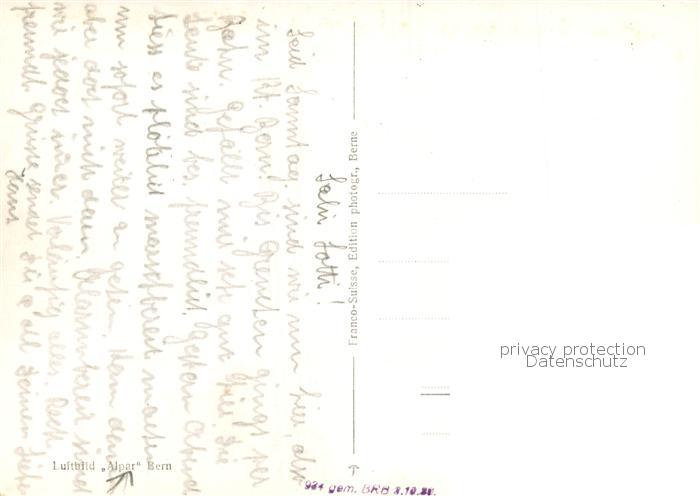 Salü Lotti!
Seit Samstag sind wir nun hier, also
im Kt. Bern! Bis Grenchen gings per
Bahn. Gefällt mir sehr gut hier. Die
Leute sind freundlich, gestern Abend
hiess es plötzlich marschbereit machen
um sofort weiter zu gehen. Kam dann
aber doch nicht dazu.
wir jedoch immer. Vorläufig alles. Recht
freundl. Grüsse sendet Dir & all Deinen Lieben
Hans
Franco-Suisse, Edition photogr., Berne
Luftbild „Alpar" Bern
gem. BRB 3.10.
privacy protection
Datenschutz